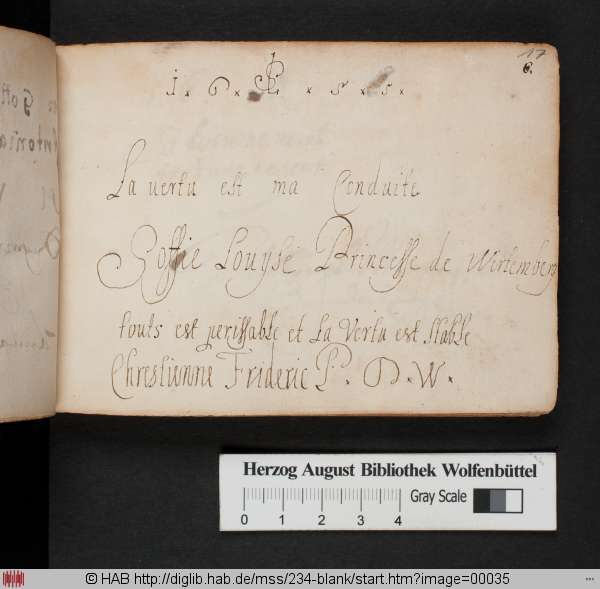 17
6.
1. 6. . 5. 5.
La vertu est ma Conduite
Soffie Louyse Princesse de Wirtemberg
touts est perissable et La Vertu est stable
Chrestienne Frideric P. D. W.
Herzog August Bibliothek Wolfenbüttel
Gray Scale
0 1 2 3 4
© HAB http://diglib.hab.de/mss/234-blank/start.htm?image=00035